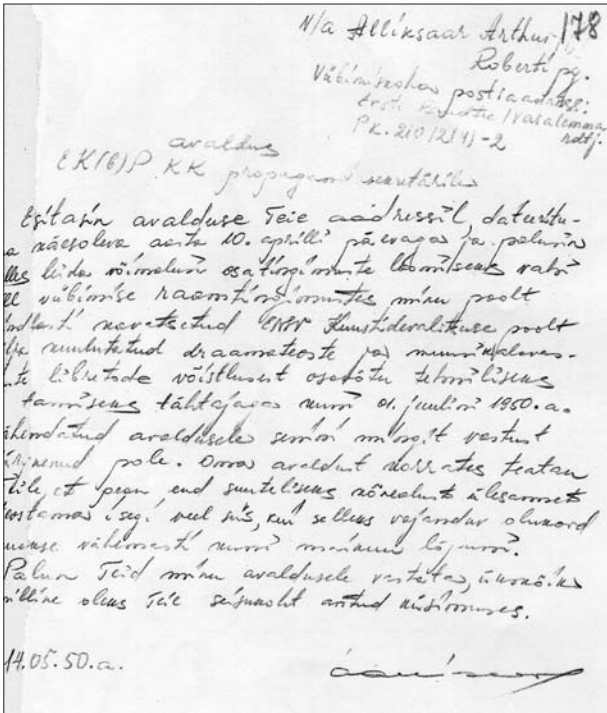 178
N/a Alliksaar Arthur
Roberti pg.
Viibimiskoha postiaadress:
Eesti Vasalemma
P.K. 210/2(4)-2
avaldus
EK(b)P KK propagandasekretärile
Esitasin avalduse Teie aadressil, dateeritu-
käesoleva aasta 10. aprilli päevaga ja palusin
leida võimalusi osatingimuste loomiseks vabi
viibimise raamtingimustes minu poolt
kavatsetud ENSV Kunstidevalitsuse poolt
draamateoste ja muusikalavas-
te libretode võistlusest osavõtu tehniliseks
tähtajaga kuni 01. juulini 1950.a.
ähendatud avaldusele senini mingit vastust
pole. Oma avaldust korrates teatan
et pean end suuteliseks kõnealust ülesannet
teostama isegi veel siis, kui selleks vajandav olukord
vähemasti kuni maikuu lõpuni.
Palun Teid minu avaldusele vastata, ükskõik
milline oleks Teie seisukoht antud küsimuses.
14.05.50.a.